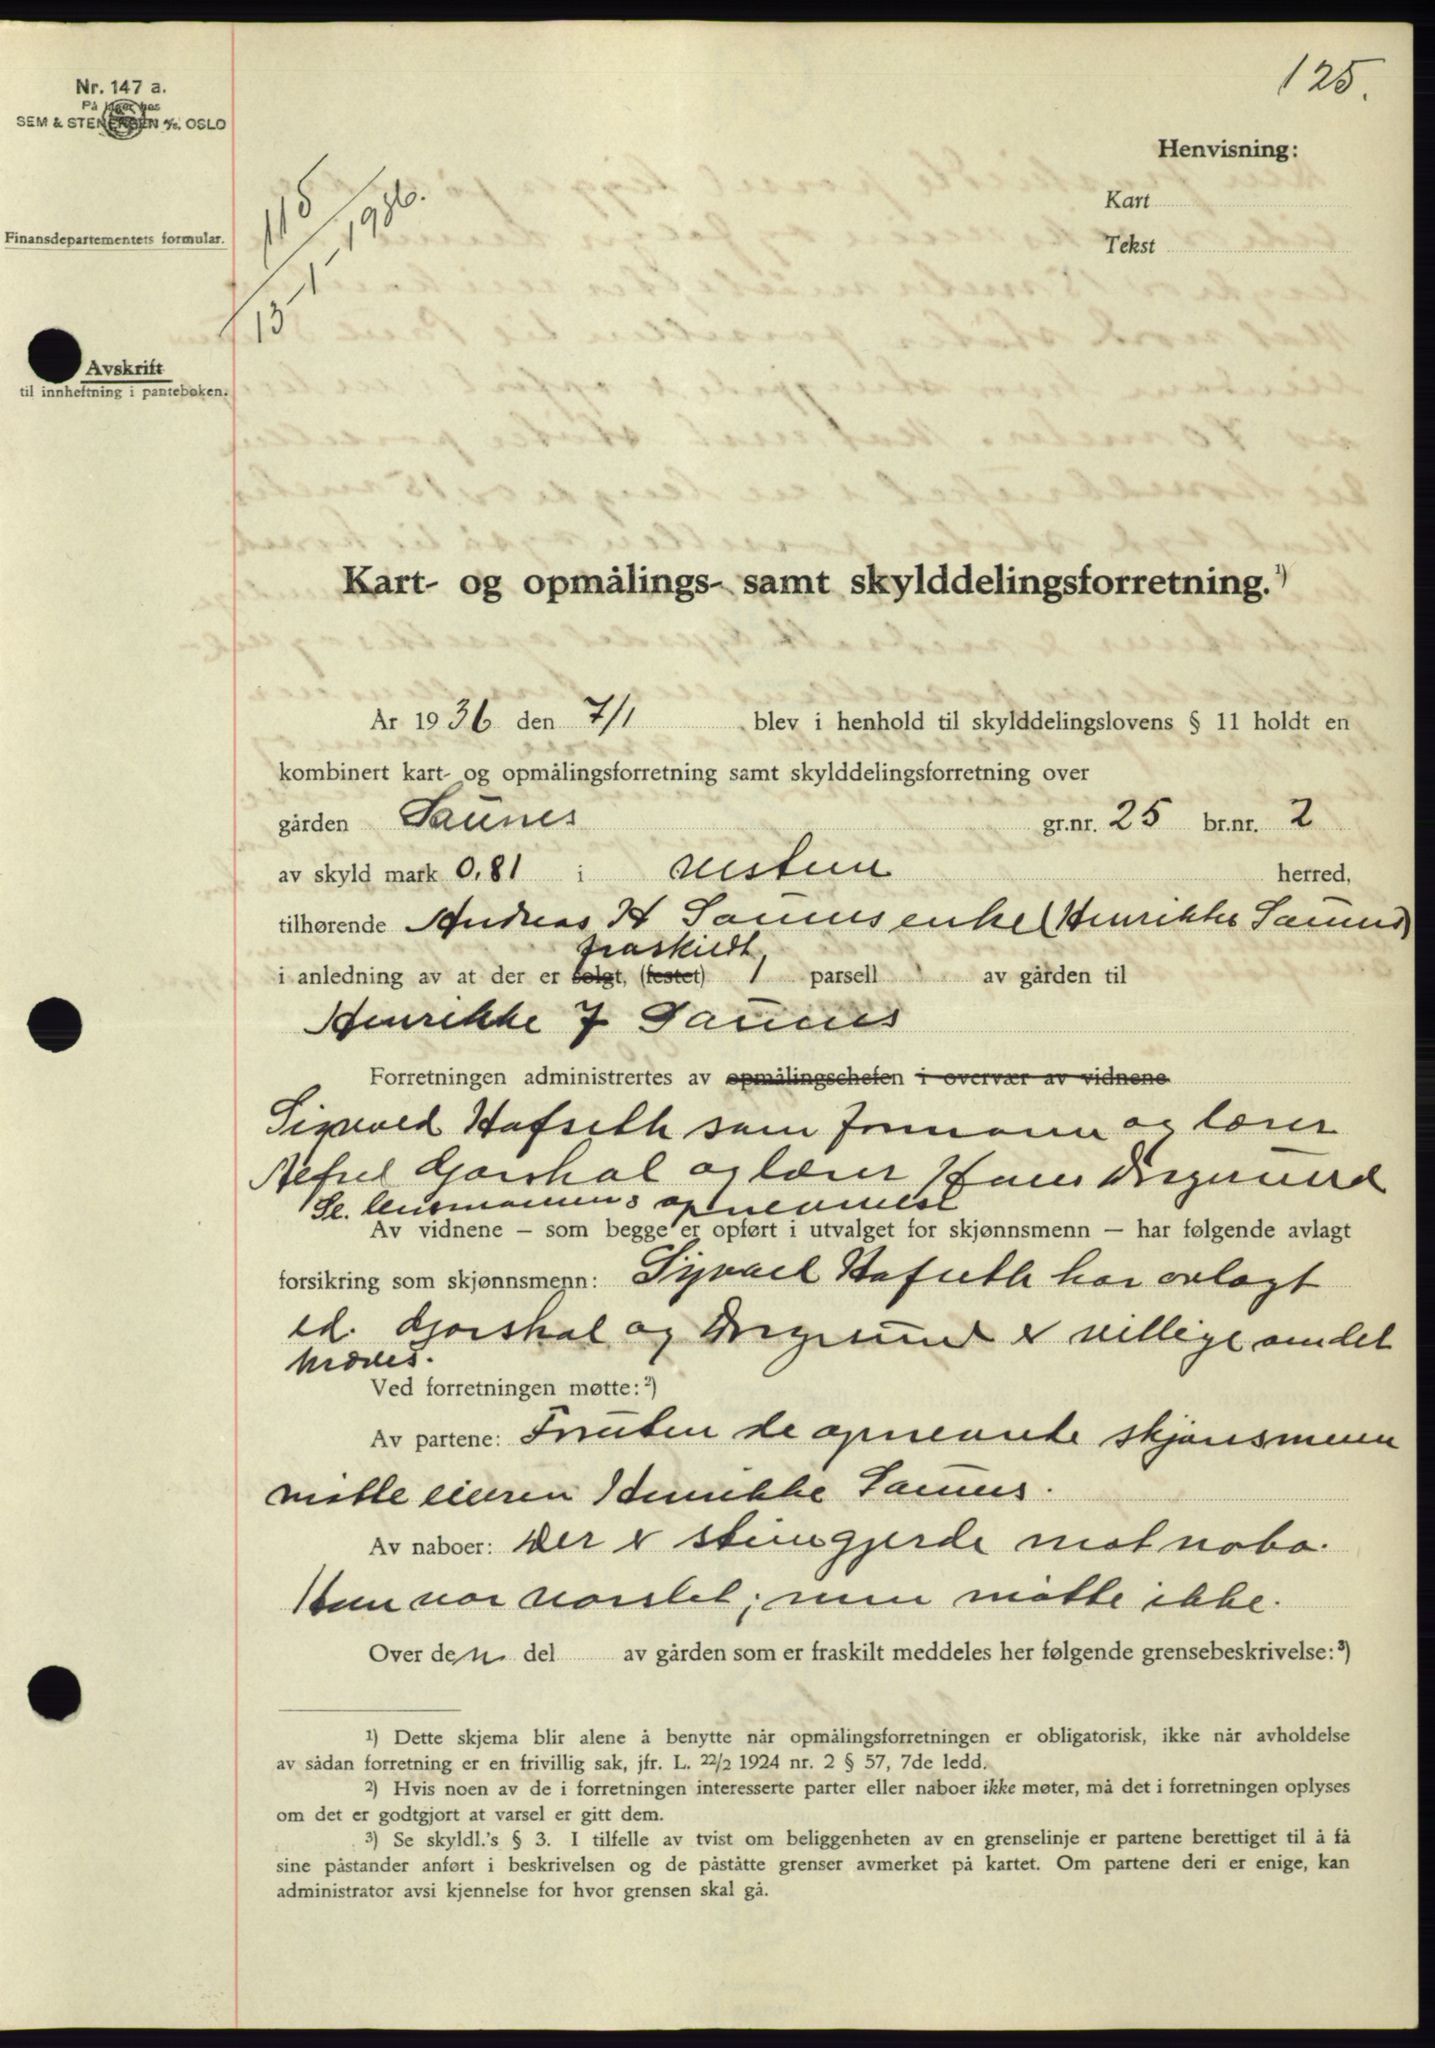 125.
Nr. 147 a.
På lager hos
SEM & STENERSEN A/S, OSLO
Henvisning:
Kart
Tekst
115/1936.
13-1-
Finansdepartementets formular.
Avskrift
til innheftning i panteboken.
Kart- og opmålings- samt skylddelingsforretning.¹)
År 1936 den 7/1 blev i henhold til skylddelingslovens § 11 holdt en
kombinert kart- og opmålingsforretning samt skylddelingsforretning over
gården Saunes gr.nr. 25 br.nr. 2
av skyld mark 0,81 i herred,
tilhørende Andreas H Saunes enke (Henrikke Saunes)
fraskildt
i anledning av at der er solgt, (festet) 1 parsell av gården til
Henrikke J Saunes
Forretningen administrertes av opmålingschefen i overvær av vidnene
Sigvald Hafseth som formann og lærer
Alfred Gjørskal og lærer Hans
Se lensmannens opnevnelse
Av vidnene – som begge er opført i utvalget for skjønnsmenn – har følgende avlagt
forsikring som skjønnsmenn: Sigvald Hafseth har avlagt
ed. Gjørskal og er villige om det
kræves.
Ved forretningen møtte:²)
Av partene: Foruten de opnevnte skjønsmenn
møtte eieren Henrikke Saunes.
Av naboer: Der er steingjerde mot nabo.
Han var varslet; men møtte ikke.
Over den del av gården som er fraskilt meddeles her følgende grensebeskrivelse:³)
¹) Dette skjema blir alene å benytte når opmålingsforretningen er obligatorisk, ikke når avholdelse
av sådan forretning er en frivillig sak, jfr. L. 22/2 1924 nr. 2 § 57, 7de ledd.
²) Hvis noen av de i forretningen interesserte parter eller naboer ikke møter, må det i forretningen oplyses
om det er godtgjort at varsel er gitt dem.
³) Se skyldl.'s § 3. I tilfelle av tvist om beliggenheten av en grenselinje er partene berettiget til å få
sine påstander anført i beskrivelsen og de påståtte grenser avmerket på kartet. Om partene deri er enige, kan
administrator avsi kjennelse for hvor grensen skal gå.